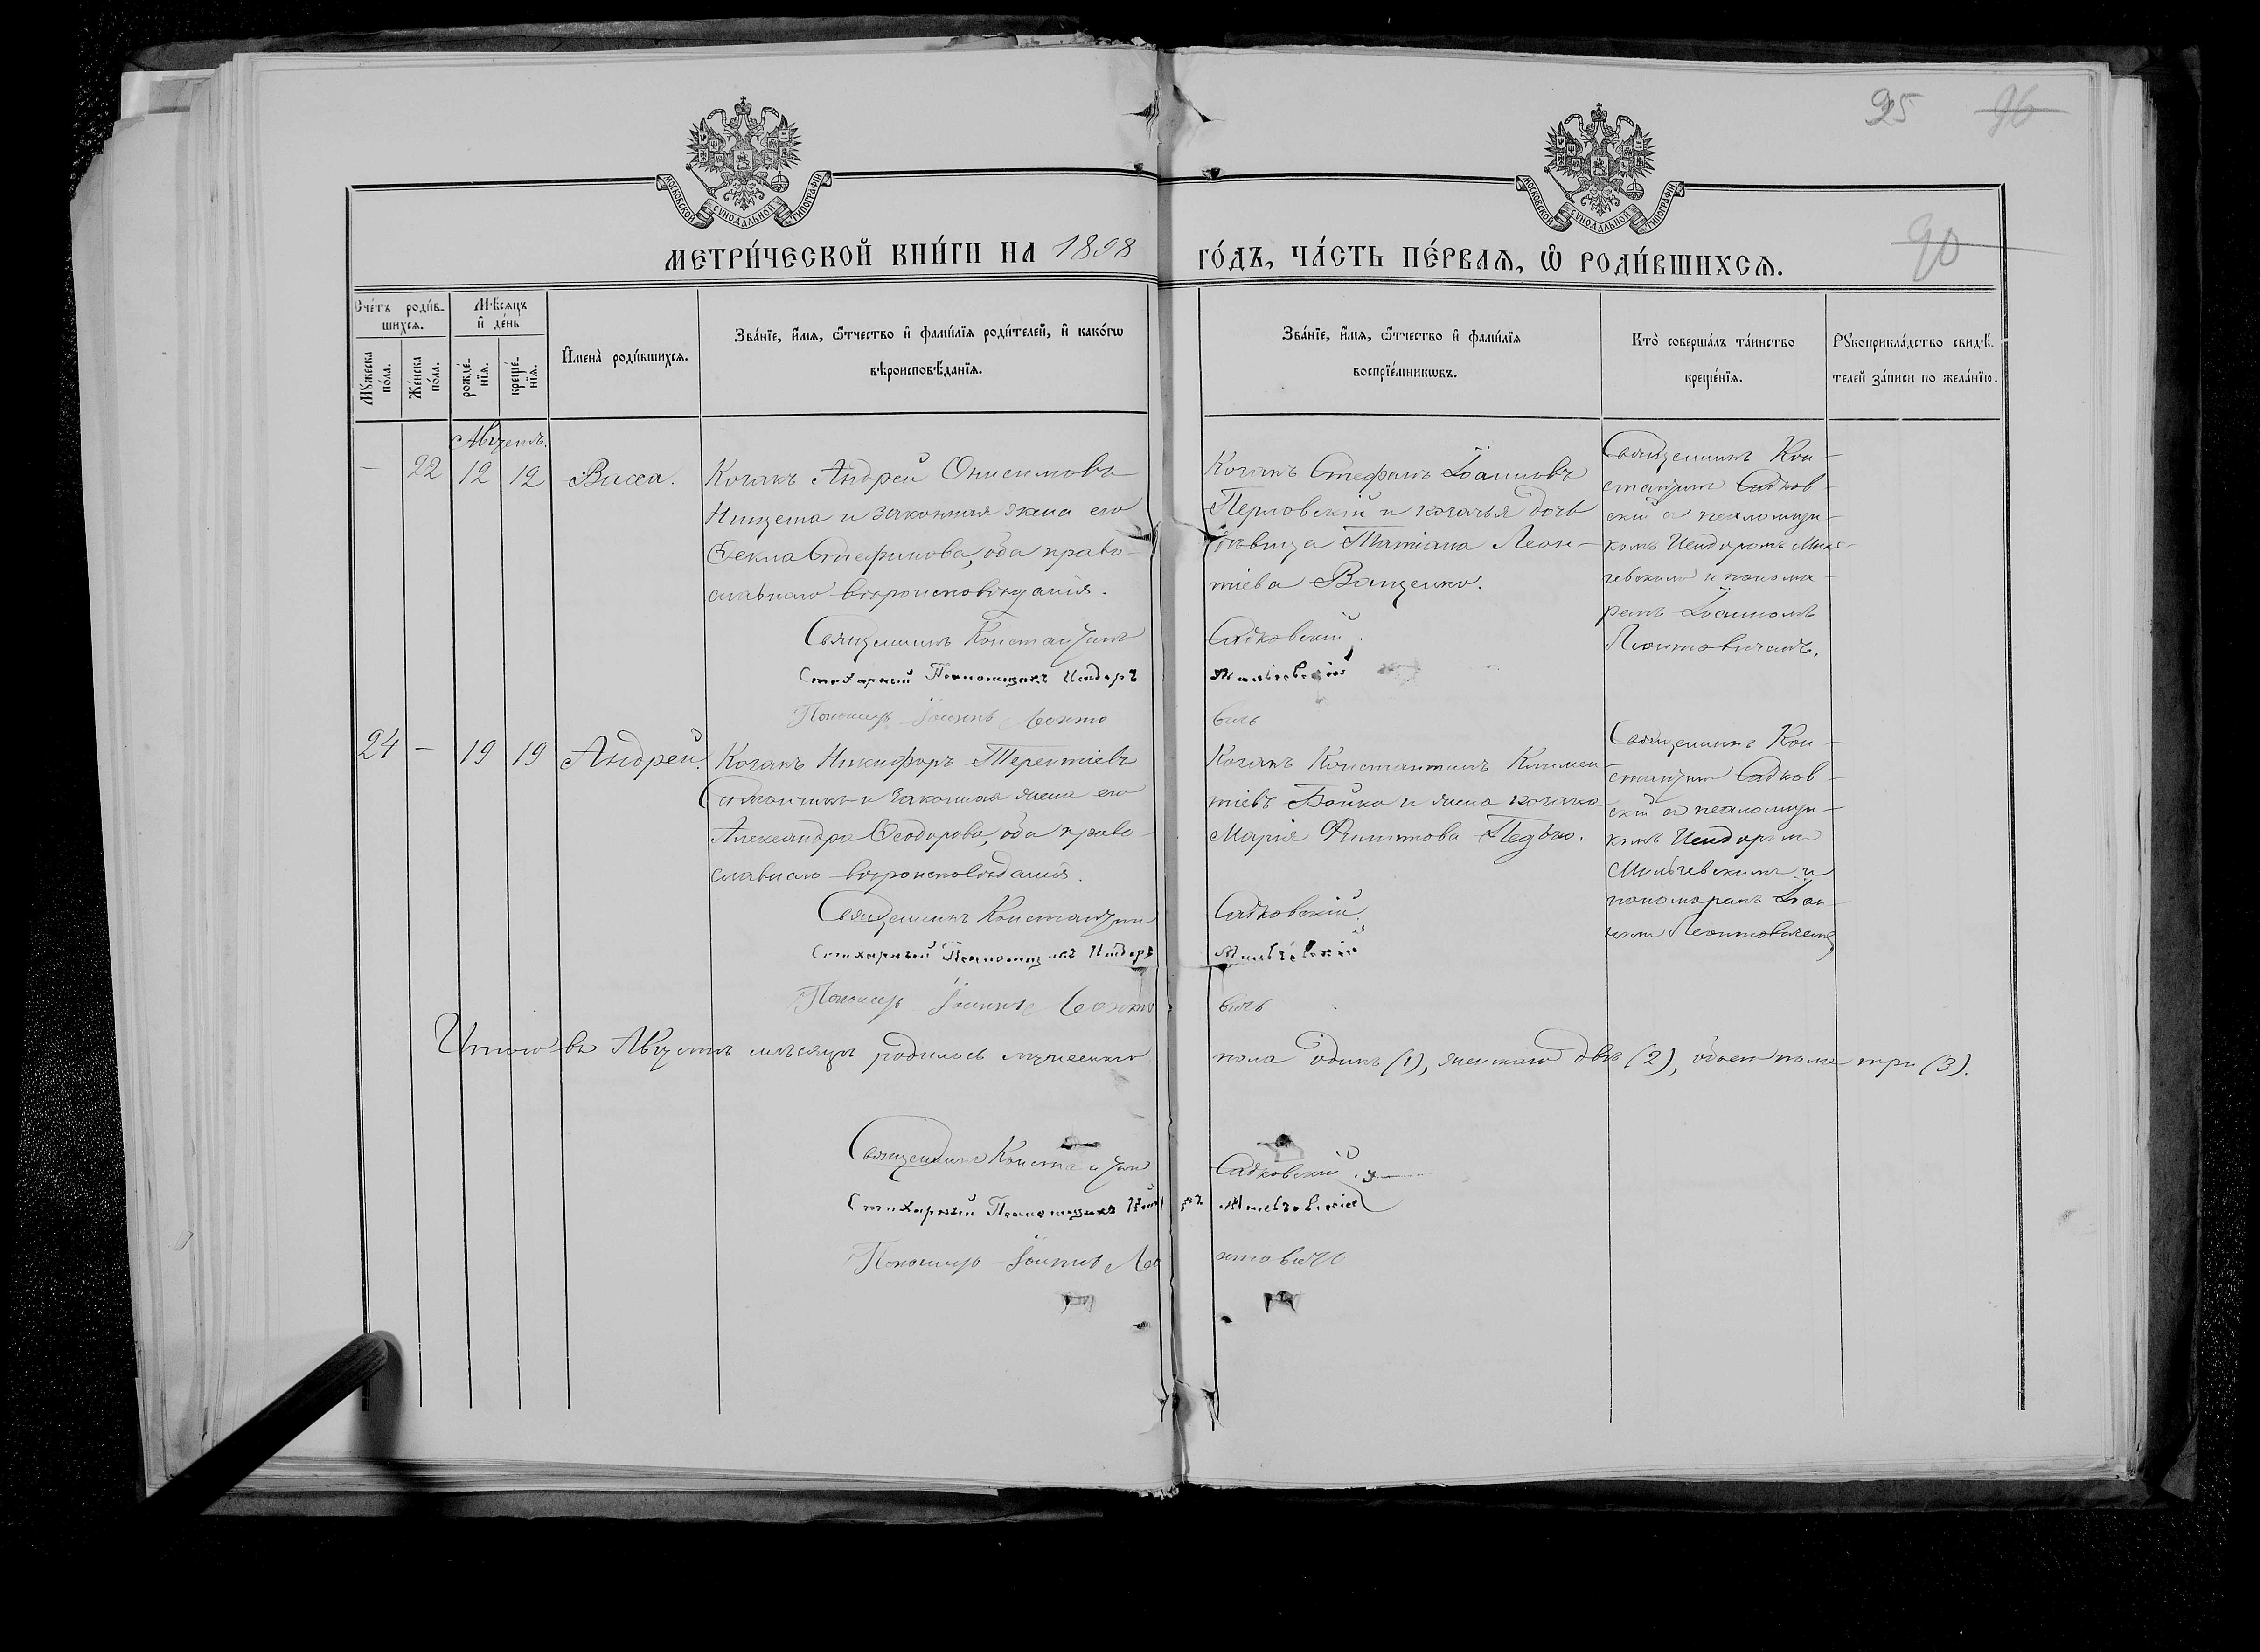 95 96
МОСКОВСКОЙ СѴНОДАЛЬНОЙ ТИПОГРАФІИ
МОСКОВСКОЙ СѴНОДАЛЬНОЙ ТИПОГРАФІИ
90
МЕТРИ́ЧЕСКОЙ КНИ́ГИ НА 1898
ГО́ДЪ, ЧА́СТЬ ПЕ́РВАЯ, Ѡ РОДИ́ВШИХСЯ.
Сче́тъ роди́в-
шихся.
Мѣ́сяцъ
и҆ де́нь
Мꙋ́жеска
по́ла.
Же́нска
по́ла.
рожде́-
нїя.
креще́-
нїя.
И҆мена̀ роди́вшихся.
Зва́нїе, и҆́мя, ѻ҆́тчество и҆ фами́лїя роди́телей, и҆ како́гѡ
вѣроисповѣ́данїя.
Зва́нїе, и҆́мя, ѻ҆́тчество и҆ фами́лїя
воспрїе́мникѡвъ.
Кто̀ соверша́лъ та́инство
креще́нїя.
Рꙋкоприкла́дство свидѣ́-
телей за́писи по жела́нїю.
Августъ.
— 22 12 12 Васса.
Козакъ Андрей Онисимовъ
Нищета и законная жена его
Ѳекла Стефанова, оба право-
славнаго вѣроисповѣданія.
Священникъ Константинъ
Стихарный Псаломщикъ Исидоръ
Пономарь Іоаннъ Леонто
Козакъ Стефанъ Іоанновъ
Перловскій и козачья дочь
дѣвица Татіана Леон-
тіева Ващенко.
Садковскій.
вичъ
Священникъ Кон-
стантинъ Садков-
скій съ псаломщи-
комъ Исидоромъ
и понома-
ремъ Іоанномъ
Леонтовичемъ.
24 — 19 19 Андрей.
Козакъ Никифоръ Терентіевъ
и законная жена его
Александра Ѳеодорова, оба право-
славнаго вѣроисповѣданія.
Священникъ Константинъ
Стихарный Псаломщикъ Исидоръ
Пономарь Іоаннъ Леонто
Козакъ Константинъ Климен-
тіевъ Бойко и жена козака
Марія Филиппова
Садковскій.
вичъ
Священникъ Кон-
стантинъ Садков-
скій съ псаломщи-
комъ Исидоромъ
и
пономаремъ Іоан-
номъ Леонтовичемъ
Итого въ Августѣ мѣсяцѣ родилось мужескаго пола одинъ (1), женскаго двѣ (2), обоего пола три (3).
Священникъ Константинъ Садковскій.
Стихарный Псаломщикъ Исидоръ
Пономарь Іоаннъ Леонтовичъ